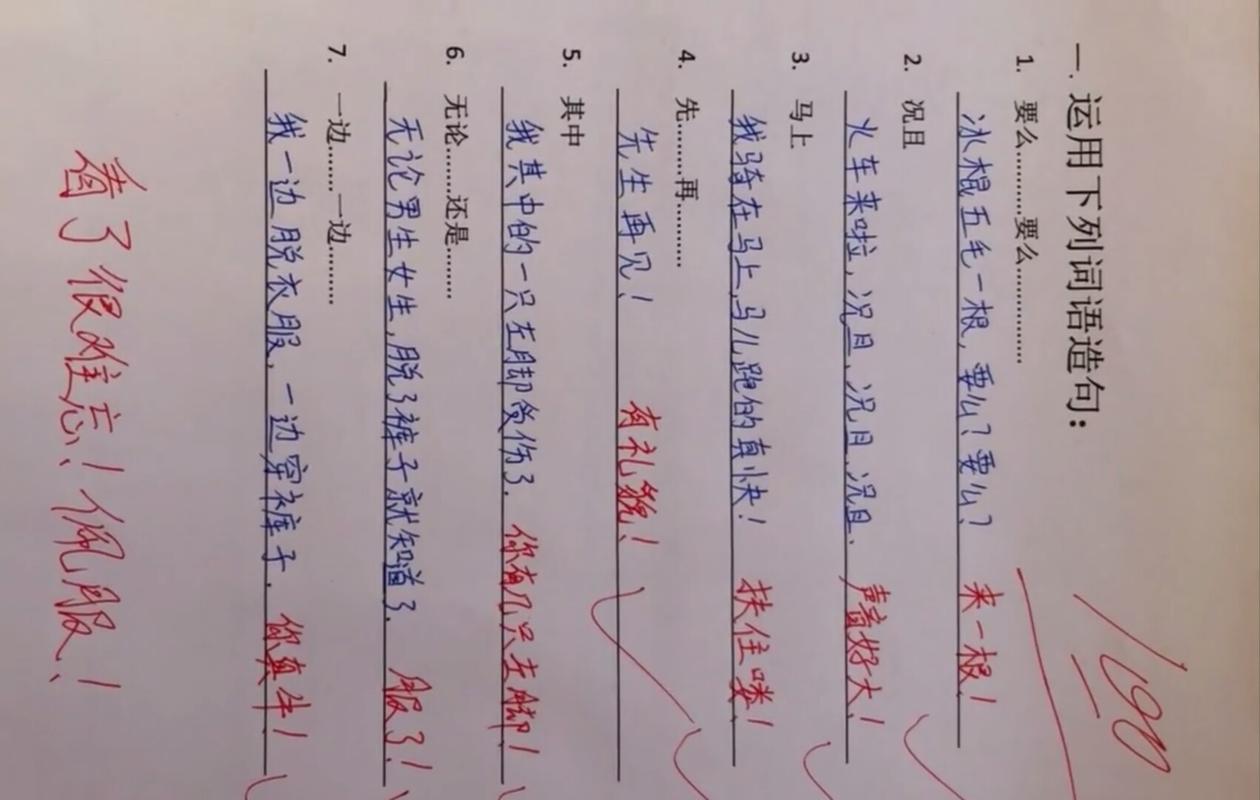 一. 运用下列词语造句:
100
1. 要么………要么…………
冰棍五毛一根,要么?要么? 来一根!
2. 况且
火车来啦,况且,况且,况且. 声音好大!
3. 马上
我骑在马上,马儿跑的真快! 扶住喽!
4. 先………再………
先生再见! 有礼貌!
5. 其中
我其中的一只左脚受伤了. 你有几只左脚!
6. 无论……还是……
无论男生女生,脱了裤子就知道了. 服了!
7. 一边……一边……
我一边脱衣服,一边穿裤子. 你真牛!
看了很难忘!佩服!